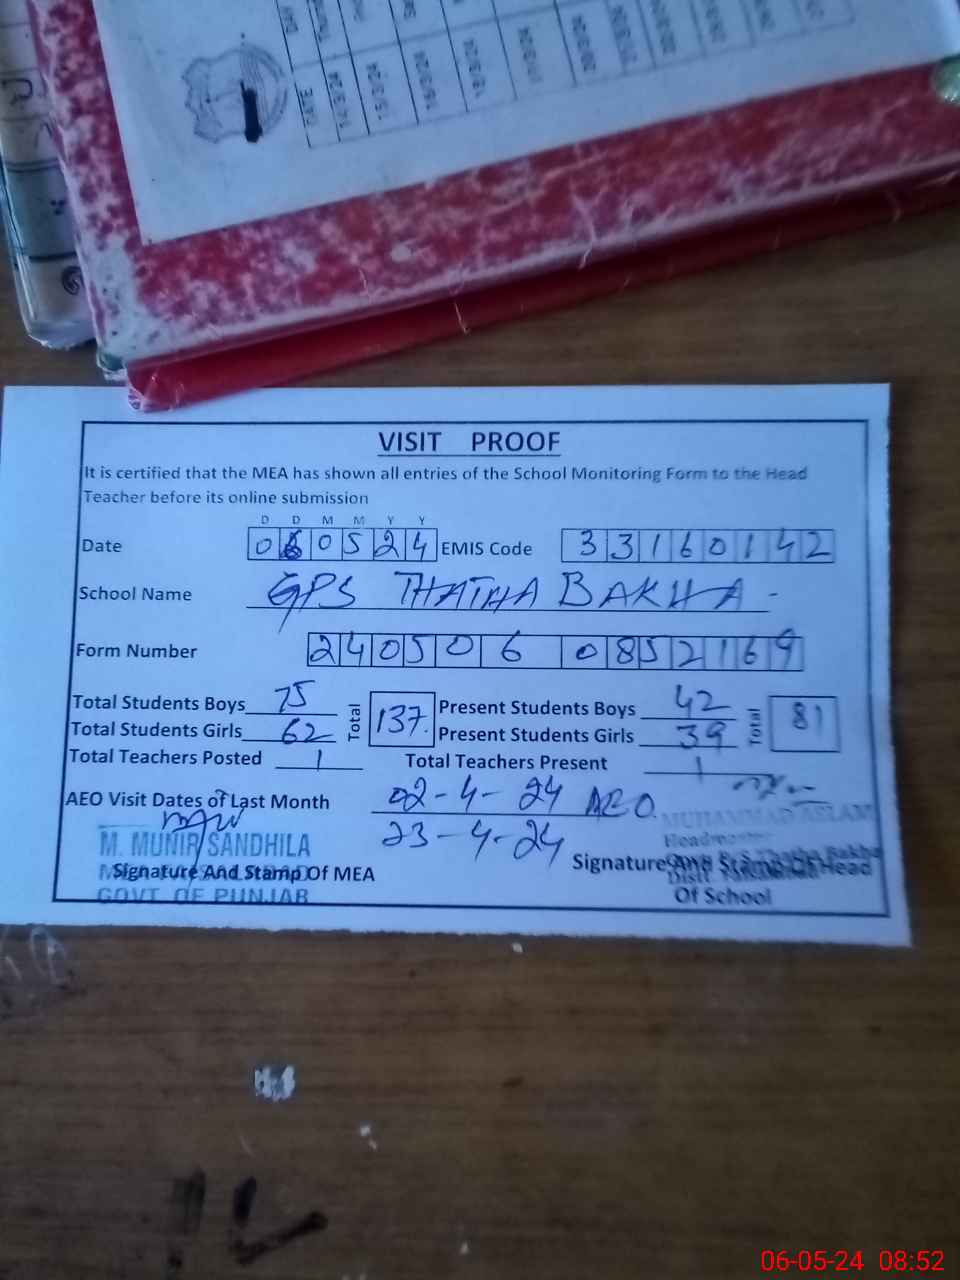 DAY
DATE
VISIT PROOF
It is certified that the MEA has shown all entries of the School Monitoring Form to the Head
Teacher before its online submission
D D M M Y Y
Date 060524 EMIS Code 33160142
School Name GPS THATHA BAKHA
Form Number 240506 0852169
Total Students Boys 75 Total 137 Present Students Boys 42 Total 81
Total Students Girls 62 Present Students Girls 39
Total Teachers Posted 1 Total Teachers Present 1
AEO Visit Dates of Last Month 02-4-24 AEO.
23-4-24
MUHAMMAD ASLAM
Headmaster
M. MUNIR SANDHILA
Signature And Stamp Of MEA Signature And Stamp Of Head
GOVT OF PUNJAB Of School
06-05-24 08:52